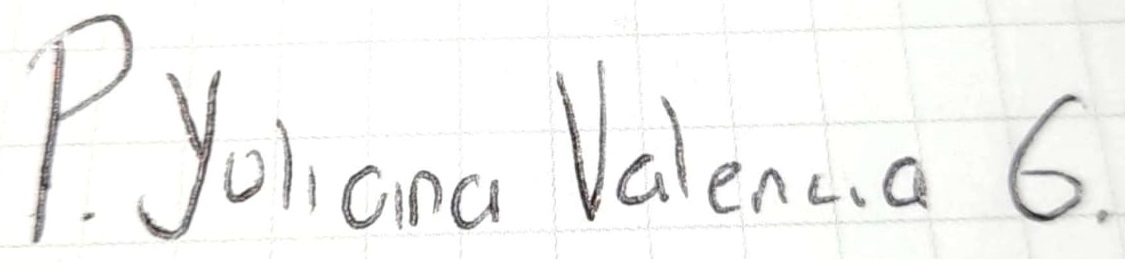 P. Yuliana Valencia G.